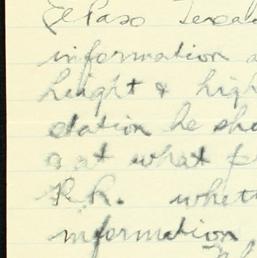 El Paso Texas
information a
height & high
station he sho
a at what p
R.R. whet
information